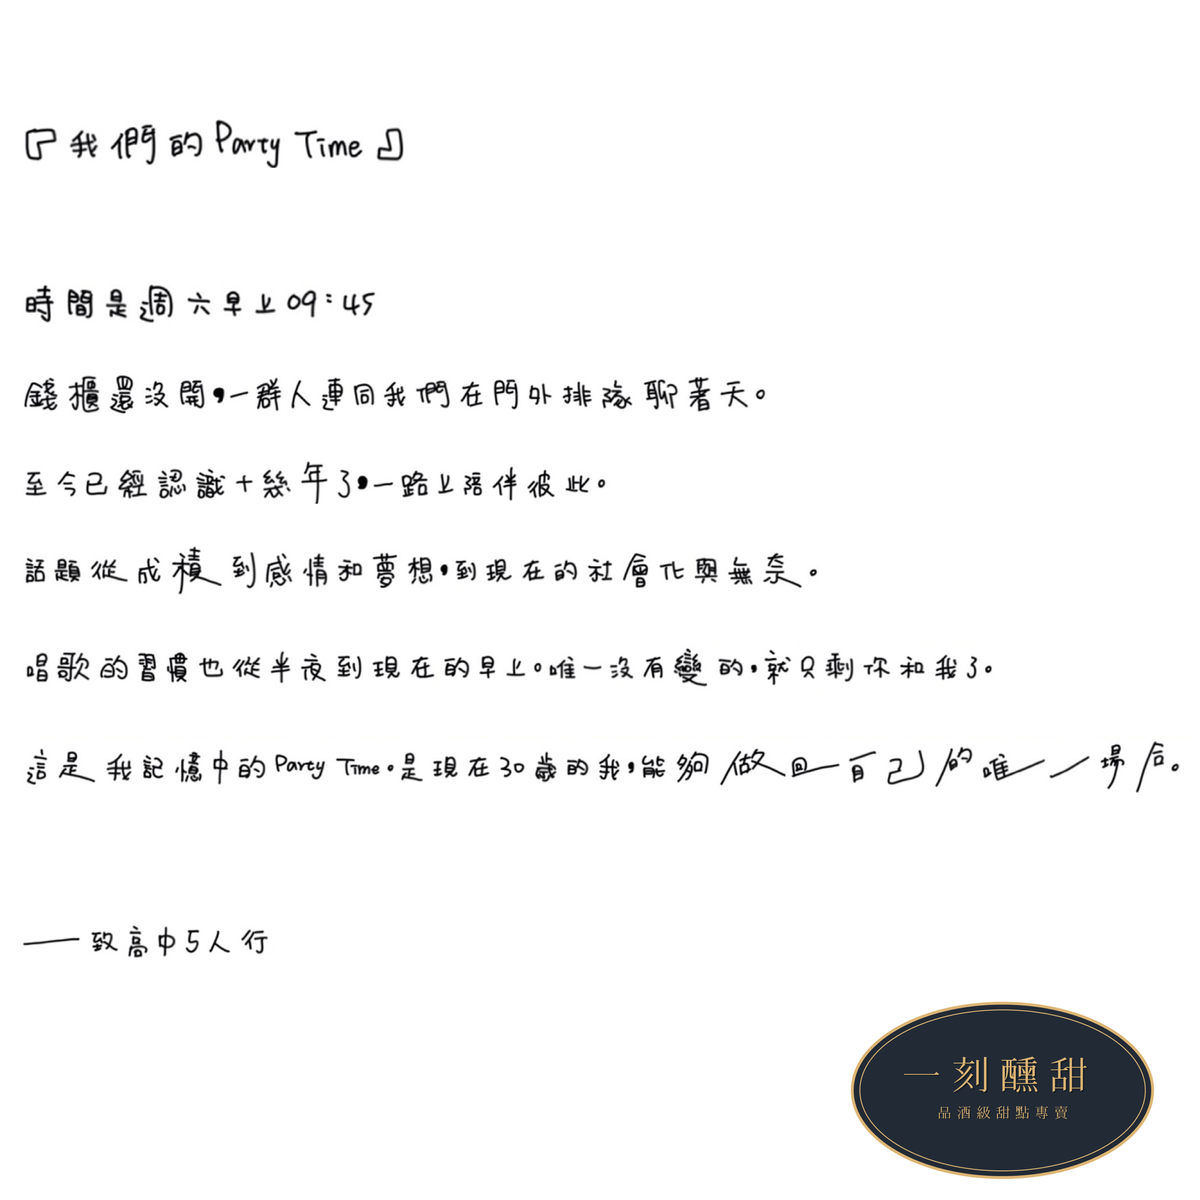 『我們的Party Time』
時間是週六早上09:45
錢櫃還沒開，一群人連同我們在門外排隊聊著天。
至今已經認識十幾年了，一路上陪伴彼此。
話題從成積到感情和夢想，到現在的社會化與無奈。
唱歌的習慣也從半夜到現在的早上。唯一沒有變的，就只剩你和我了。
這是我記憶中的Party Time。是現在30歲的我，能夠做回自己的唯一場合。
——致高中5人行
一刻醺甜
品酒級甜點專賣